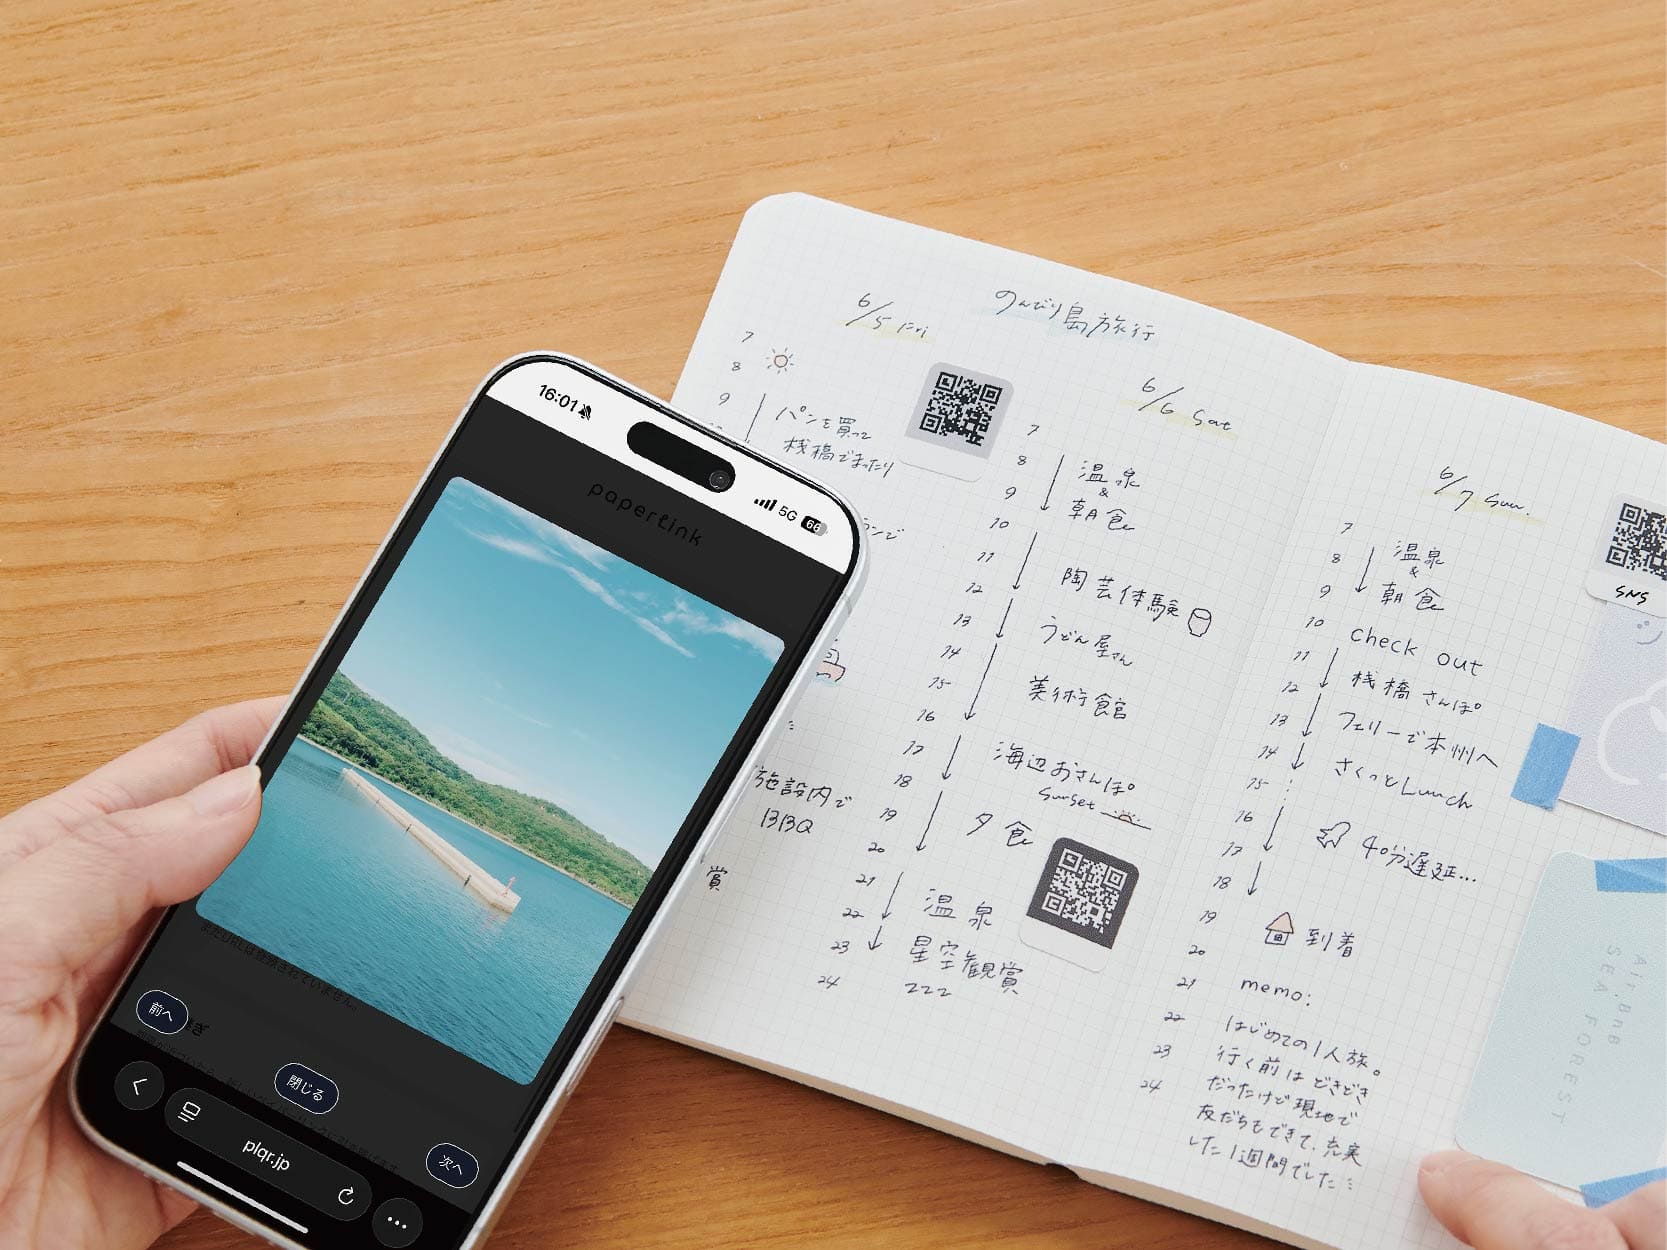 16:01
5G 66
paperlink
まだURLは登録されていません。
前へ
閉じる
次へ
plqr.jp
のんびり島旅行
6/5 Fri
7
8
9
パンを買って
桟橋でまったり
施設内で
BBQ
賞
6/6 Sat
7
8
9
10
11
12
13
14
15
16
17
18
19
20
21
22
23
24
温泉
&
朝食
陶芸体験
うどん屋さん
美術館
海辺おさんぽ
Sunset
夕食
温泉
星空観賞
zzz
6/7 Sun.
7
8
9
10
11
12
13
14
15
16
17
18
19
20
21
22
23
24
温泉
&
朝食
check out
桟橋さんぽ
フェリーで本州へ
さくっとLunch
40分遅延...
到着
memo:
はじめての1人旅。
行く前はどきどき
だったけど現地で
友だちもできて、充実
した1週間でした
SNS
Air.BnB
SEA FOREST